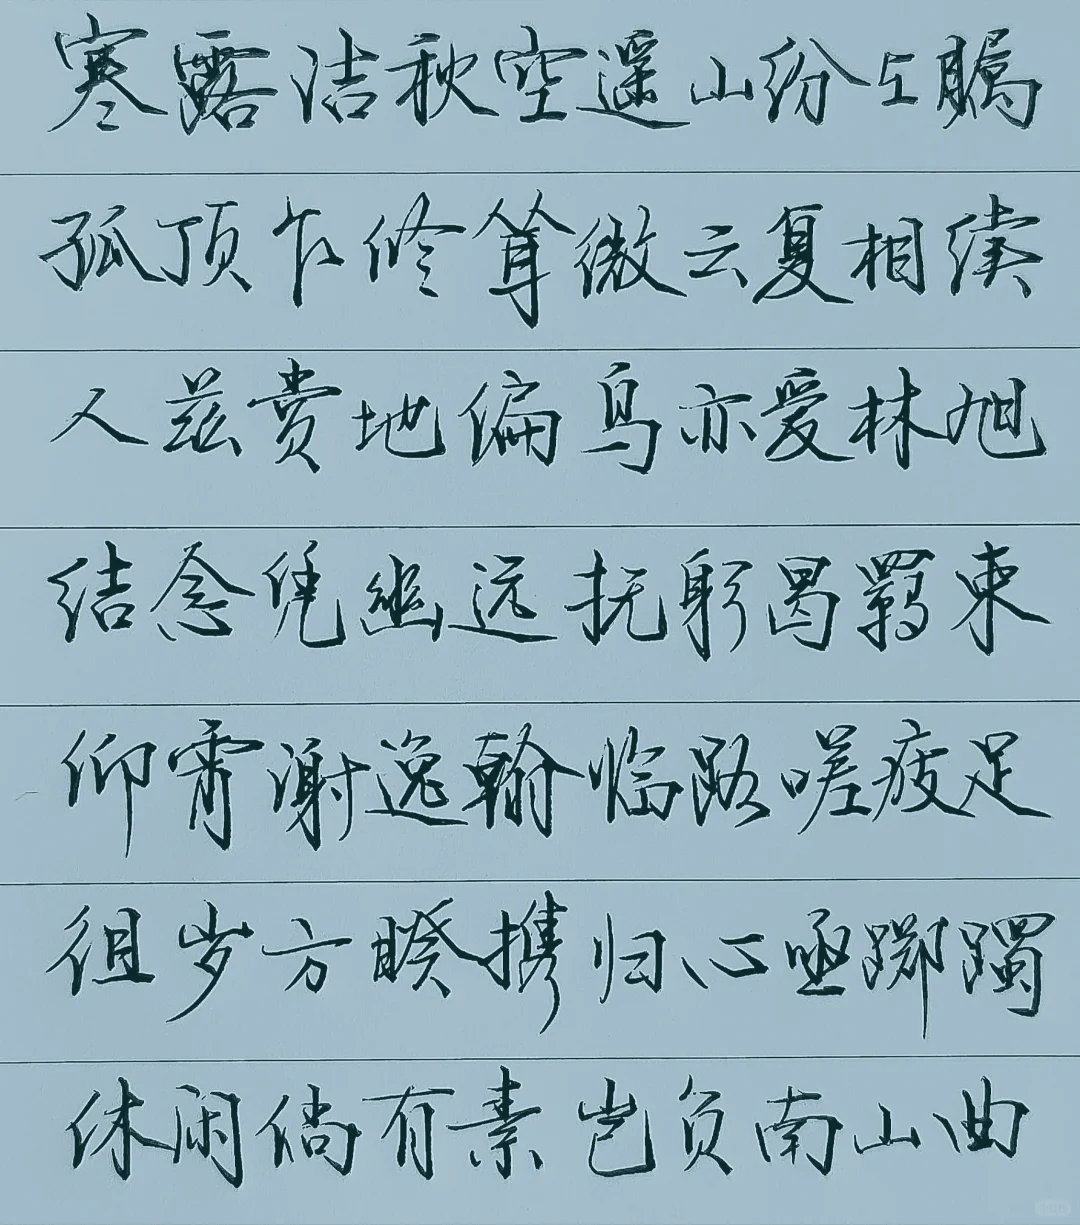 寒露洁秋空遥山纷在瞩
孤顶乍修耸微云复相续
人兹赏地偏鸟亦爱林旭
结念凭幽远抚躬曷羁束
仰霄谢逸翰临路嗟疲足
徂岁方睽携归心亟踯躅
休闲倘有素岂负南山曲